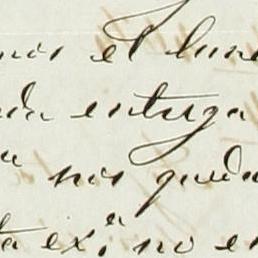 nos el lune
da entrega
a nos queda
ta ex.ª no en